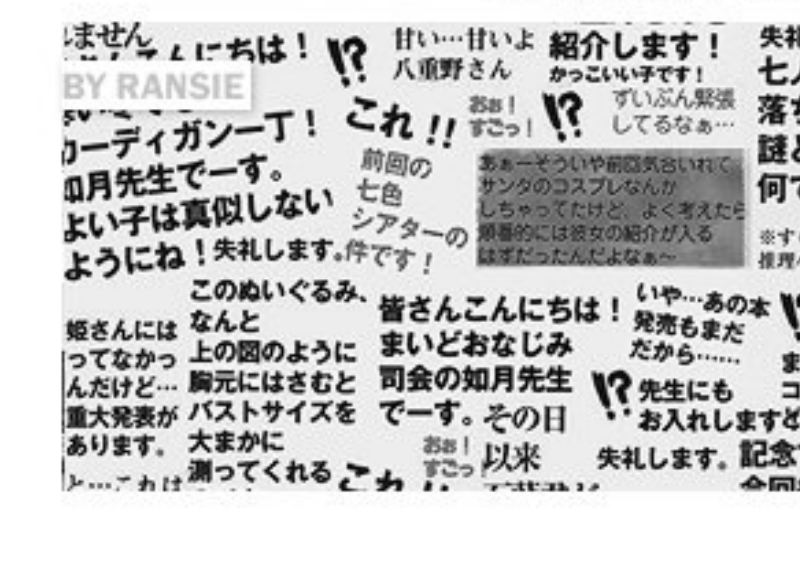 しません
こんにちは！
!?
BY RANSIE
カーディガン一丁！
如月先生でーす。
よい子は真似しない
ようにね！
失礼します。
甘い…甘いよ
八重野さん
紹介します！
かっこいい子です！
これ!!
おぉ！
すごっ！
!?
ずいぶん緊張
してるなぁ…
前回の
七色
シアターの
件です！
あぁーそういや前回気合いれて
サンタのコスプレなんか
しちゃってたけど、よく考えたら
順番的には彼女の紹介が入る
はずだったんだよなぁ～
失礼
七人
落ち
謎と
何で
姫さんには
ってなかっ
んだけど…
重大発表が
あります。
と…これは
このぬいぐるみ、
なんと
上の図のように
胸元にはさむと
バストサイズを
大まかに
測ってくれる
皆さんこんにちは！
まいどおなじみ
司会の如月先生
でーす。
おぉ！
すごっ
これ!!
その日
以来
いや…あの本
発売もまだ
だから……
!?
先生にも
お入れしますど
失礼します。
記念